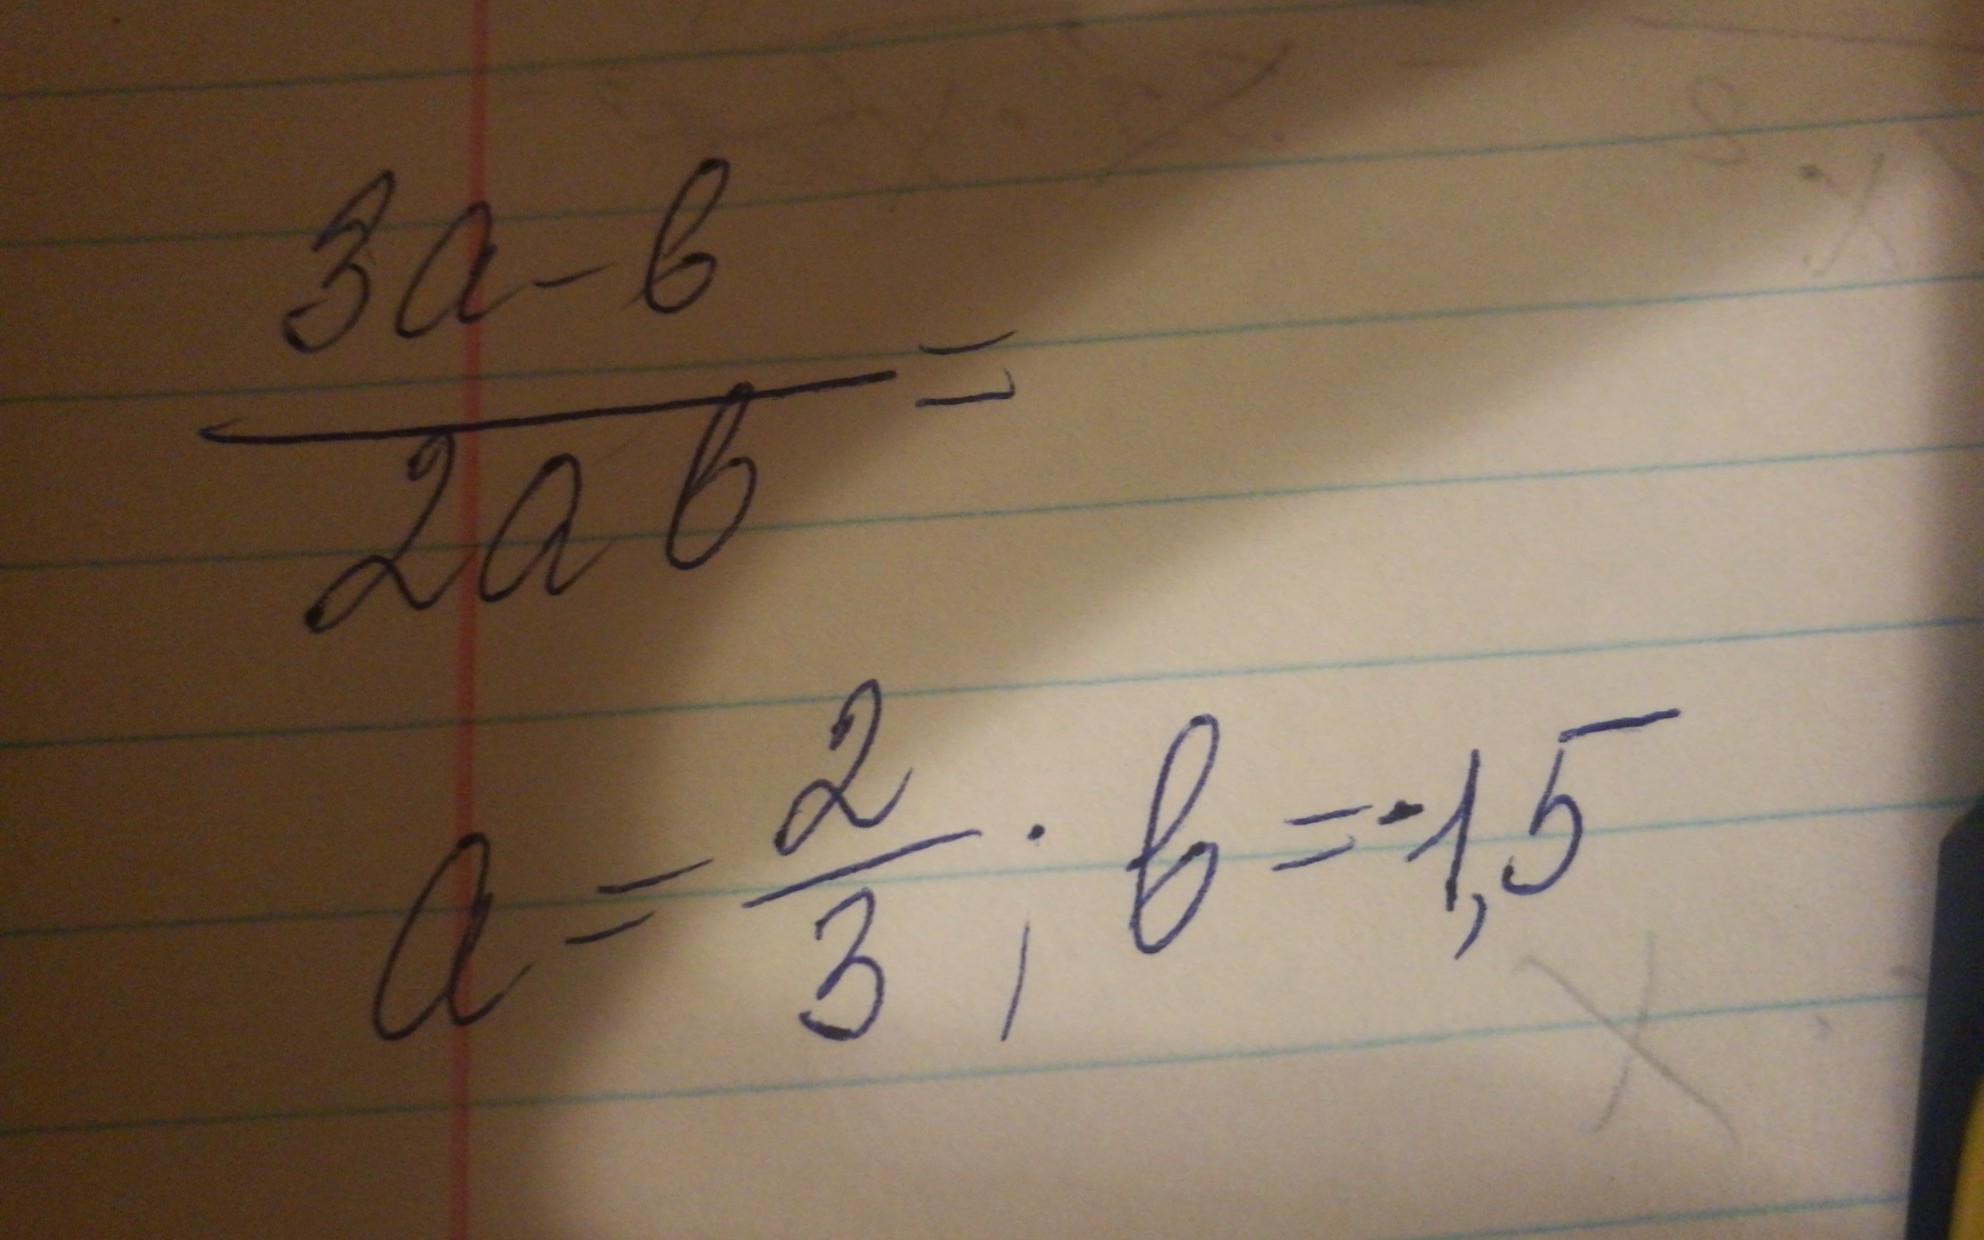 3a-b
2ab =
a = 2/3 ; b = -1,5